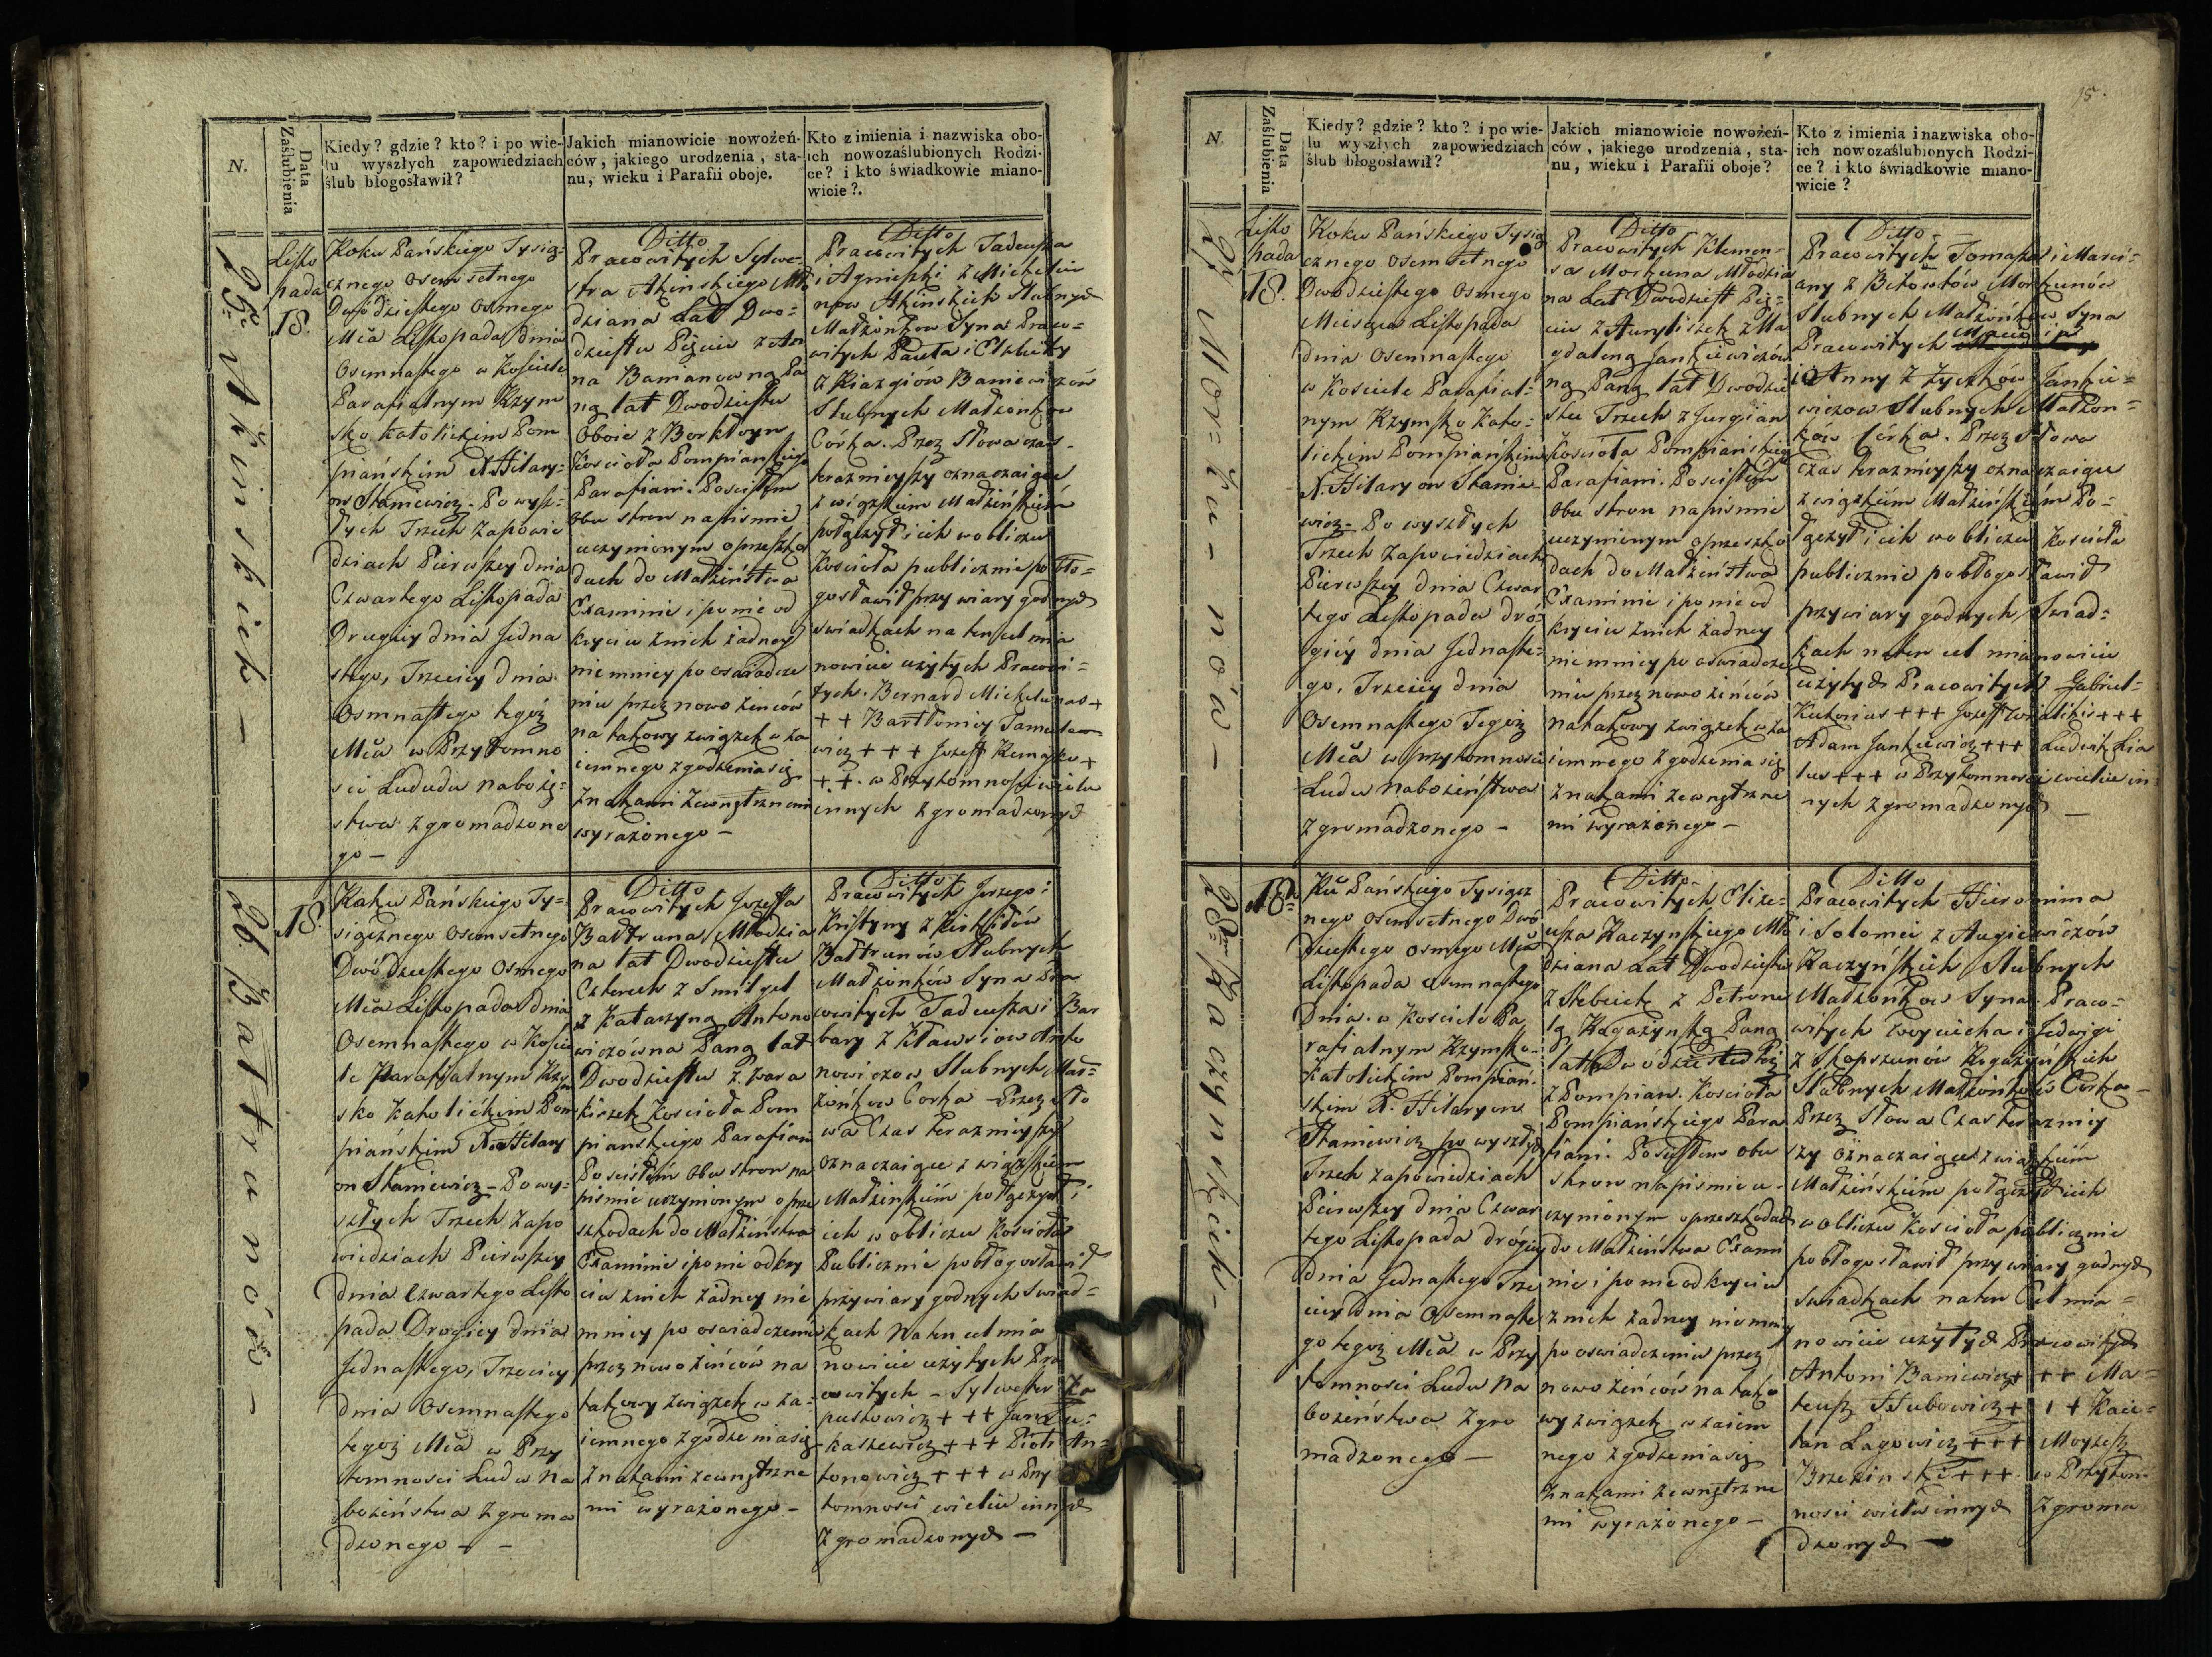 N.
Data Zaślubienia
Kiedy? gdzie? kto? i po wie-
lu wyszłych zapowiedziach
ślub błogosławił?
Jakich mianowicie nowożeń-
ców, jakiego urodzenia, sta-
nu, wieku i Parafii oboje.
Kto z imienia i nazwiska obo-
ich nowozaślubionych Rodzi-
ce? i kto świadkowie miano-
wicie?.
25
Akinskich –
Listo
pada
18.
Roku Pańskiego Tysią-
cznego osemsetnego
Dwódziestego osmego
Mca Listopada dnia
Osemnastego w Kosciele
Parafialnym Rzym
sko katolickim Pom
piańskim X. Hilary-
on Staniewicz. Po wysz-
łych Trzech zapowie
dziach Pierwszey dnia
Czwartego Listopada
Drugiey dnia Jedna
stego, Trzeciey dnia
Osmnastego tegoż
Mca w Przytomno
sci Ludu du nabożę-
stwa zgromadzone
go –
Ditto
Pracowitych Sylwe-
stra Akinskiego Mło
dziana Lat Dwo-
dziestu Pięciu z An
na Banianowną Pa
ną lat Dwodziestu
Oboie z Borkloyn
Kościoła Pompianskiego
Parafiani. Po scisłym
obu stron na pismie
uczynionym o przeszko
dach do Małżeństwa
Examinie i po nie od
kryciu żnich żadney
niemniey po oswiadcze
niu przez nowożeńców
na takowy związek w za
iemnego zgodzenia się
znakami zewnętrznemi
wyrażonego –
Ditto
Pracowitych Tadeusza
i Agnieszki z Michelu
now Akińskich slubnych
Małżonkow Syna Praco-
witych Pawła i Elżbiety
z Kiazgiów Baniewiczow
Slubnych Małżonkow
Córka. Przez słowa czas
teraznieyszy oznaczaiące
związkiem Małżeńskim
połączył i ich w obliczu
Kościoła publicznie pobło-
gosławił przy wiary godnych
swiadkach na ten cel mia
nowicie użytych Pracowi-
tych. Bernard Michelunas +
+ + Bartłomiey Tamulew
wicz + + + Jozeff Kungs +
+ +. w Przytomnosci wielu
innych zgromadzonych
26
Bałtrunów –
18.
Roku Pańskiego Ty-
siącznego osemsetnego
Dwódziestego Osmego
Mca Listopada dnia
Osemnastego w Koscie
le Parafialnym Rzym
sko katolickim Pom
piańskim X. Hilary
on Staniewicz – Po wy-
szłych Trzech zapo
wiedziach Pierwszey
dnia Czwartego Listo
pada Drogiey dnia
Jednastego, Trzeciey
dnia Osemnastego
tegoż Mca w Przy
tomnosci Ludu na
bożeństwa zgroma
dzonego – –
Ditto
Pracowitych Jozeffa
Bałtruna Młodzia
na lat Dwodziestu
Czterech z Smilgel
z Katarzyną Antono
wiczówna Paną lat
Dwodziestu z Wara
kiszek Kosciola Pom
pianskiego Parafiani
Po scisłym obu stron na
pismie uczynionym o prze
szkodach do Małżeństwa
Examinie i po nie odkry
ciu żnich żadney nie
mniey po oswiadczeniu
przez nowożeńców na
takowy związek w za-
iemnego zgodzenia się
znakami zewnętrzne
mi wyrażonego –
Ditto
Pracowitych Jerzego i
Kristyny z Kirklidów
Bałtrunów Slubnych
Małżonków Syna Pra
cowitych Tadeusza i Bar
bary z Kławsiow Anto
nowiczow Slubnych Mał-
żonkow Corka – Przez sło
wa Czas teraznieyszy
oznaczaiące związkiem
Małżenskim połączył i
ich w obliczu Kościoła
Publicznie pobłogosławił
przy wiary godnych swiad-
kach na ten cel mia
nowicie użytych Pra
cowitych – Sylwester Ka
puscowicz + + + Jan Łu-
kaszewicz + + + Piotr An-
tonowicz + + + w Przy
tomnosci wielu innych
zgromadzonych –
15.
N.
Data Zaślubienia
Kiedy? gdzie? kto? i po wie-
lu wyszłych zapowiedziach
ślub błogosławił?
Jakich mianowicie nowożeń-
ców, jakiego urodzenia, sta-
nu, wieku i Parafii oboje?
Kto z imienia i nazwiska obo-
ich nowozaślubionych Rodzi-
ce? i kto świadkowie miano-
wicie?
27
Morkunów –
Listo
pada
18.
Roku Pańskiego Tysią
cznego osemsetnego
Dwodziestego Osmego
Miesąca Listopada
dnia osemnastego
w Kosciele Parafial-
nym Rzymsko Kato-
lickim Pompiańskim
X. Hilaryon Stanie-
wicz – Po wyszłych
Trzech zapowiedziach
Pierwszey dnia Czwar
tego Listopada dró-
giey dnia Jednaste-
go, Trzeciey dnia
Osemnastego Tegoż
Mca w przytomnosci
Ludu nabożeństwa
zgromadzonego –
Ditto
Pracowitych Klemen-
sa Morkuna Młodzia
na Lat Dwodziest Pię-
ciu z Auryliszek z Ma
gdaleną Jankiewiczów
ną Paną lat Dwodzie
stu Trzech z Jurgian
Kosciola Pompianskiego
Parafiani. Po scisłym
obu stron na pismie
uczynionym o przeszko
dach do Małżeństwa
Examinie i po nie od
kryciu żnich żadney
niemniey po oświadcze
niu przez nowożeńców
na takowy związek w za
iemnego zgodzenia się
znakami zewnętrzne
mi wyrażonego –
Ditto –
Pracowitych Tomasza i Mari-
any z Bitowtów Morkunów
Slubnych Małżonków Syna
Pracowitych Macieia
i Anny z Życzków Jankie-
wiczow Slubnych Małżon-
ków Córka. Przez słowa
czas teraznieyszy oznaczaiące
związkiem Małżeńskiem Po-
łączył i ich w obliczu Kościoła
publicznie pobłogosławił
przy wiary godnych Swiad-
kach na ten cel mianowicie
użytych Pracowitych Gabriel-
Kukonias + + + Jozeff Walikis + + +
Adam Jankiewicz + + + Ludwik Lia
lus + + + w Przytomnosci wielu in
nych zgromadzonych –
28
Kaczynskich –
18
Ru Pańskiego Tysiącz
nego osemsetnego Dwó
dziestego osmego Mca
Listopada osemnastego
Dnia w kosciele Pa
rafialnym Rzymsko-
Katolickim Pompiań-
skim X. Hilaryon
Staniewicz po wyszłych
Trzech zapowiedziach
Pierwszey dnia Czwar
tego Listopada drógiey
dnia Jednastego Trze
ciey dnia Osemnaste
go tegoż Mca w Przy
tomnosci Ludu na
bożeństwa zgro
madzonego –
Ditto –
Pracowitych Elize-
usza Kaczynskiego Mło
dziana Lat Dwodziestu
z Stebeick z Petrone
lą Rogażynską Paną
lat Dwódziestu Pię
z Pompian. Kościoła
Pompiańskiego Para
fiani. Po scisłem obu
stron na pismie u-
czynionym o przeszkodach
do Małżeństwa Exami
nie i po nie odkryciu
z nich żadney niemniey
po oswiadczeniu przez
nowożeńców na tako
wy związek w zaiem
nego zgodzenia się
znakami zewnętrzne
mi wyrażonego –
Ditto
Pracowitych Hieronima
i Solomei z Augiewiczów
Kaczyńskich Slubnych
Małżonkow Syna. Praco-
witych Woyciecha i Jadwigi
z Skopszunów Rogażyńskich
Slubnych Małżonkow Corka –
Przez słowa Czas teraźniey
szy oznaczaiące związkiem
Małżeńskiem połączył i ich
w obliczu Kościoła publicznie
pobłogosławił przy wiary godnych
Swiadkach na ten Cel mia-
nowicie użytych Pracowitych
Antoni Baniewicz + + + Ma-
teusz Hubowicz + + + Kaie-
tan Lagowicz + + + Moyżesz
Brzezinski + + +. w Przytom-
nosci wielu innych zgroma
dzonych –